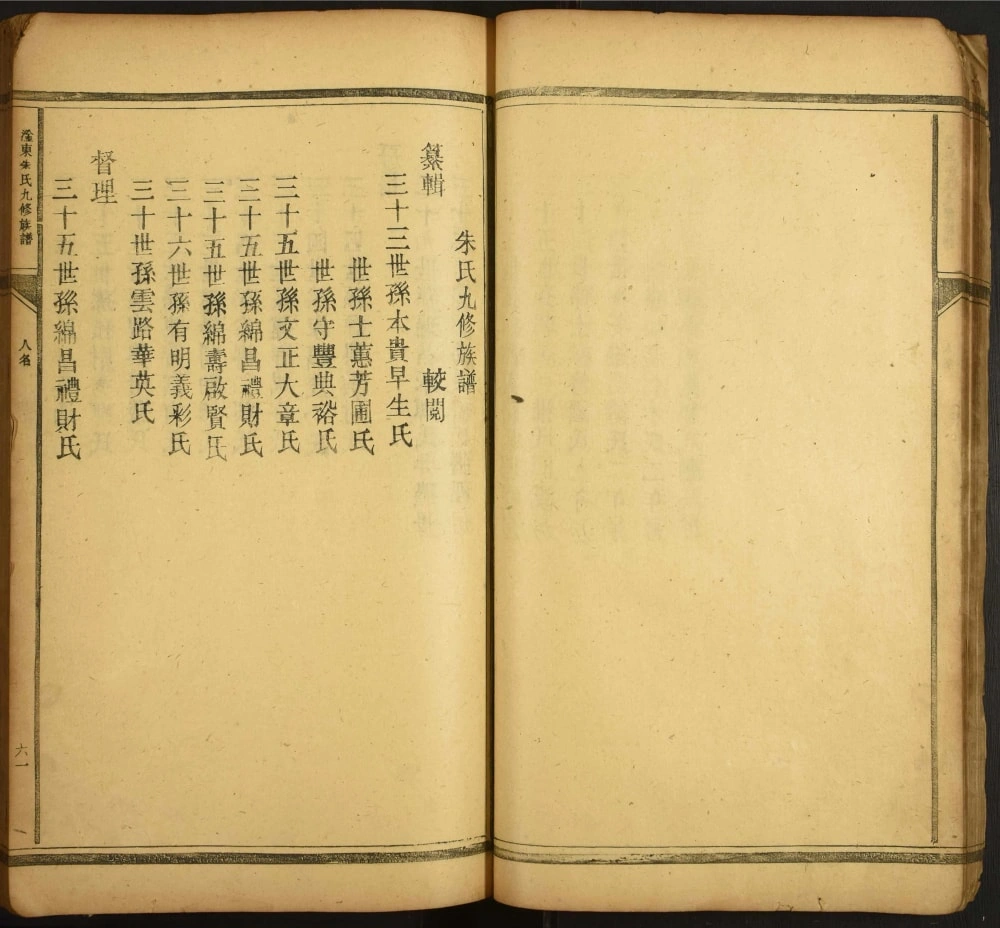 朱氏九修族譜
纂輯 較閲
三十三世孫本貴早生氏
世孫士蕙芳圃氏
世孫守豐典裕氏
三十五世孫文正大章氏
三十五世孫綿昌禮財氏
三十五世孫綿壽啟賢氏
三十六世孫有明義彩氏
三十世孫雲路華英氏
督理
三十五世孫綿昌禮財氏
東朱氏九修族譜
人名
六一